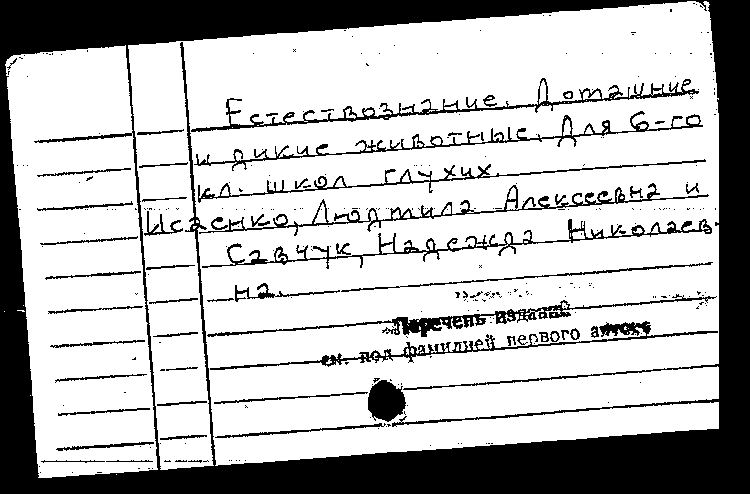 Естествознание. Домашние
и дикие животные. Для 6-го
кл. школ глухих.
Исаенко, Людмила Алексеевна и
Савчук, Надежда Николаев-
на.
Перечень изданий
см. под фамилией первого автора